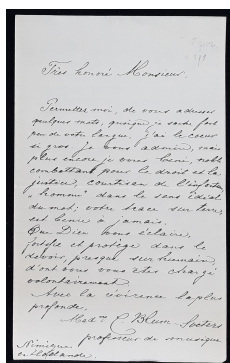 Très honoré Monsieur.
Permettez moi, de vous adresser
quelques mots, quoique je sache fort
peu de votre langue. j'ai le coeur
si gros je vous admire, mais
plus encore je vous benis, noble
combattant pour le droit et la
justice, courtisan de l'infortune
"homme" dans le sens idéal
du mot; votre trace sur terre,
est benie à jamais.
Que Dieu vous éclaire,
fortifie et protège dans le
devoir, presque surhumain,
d'ont vous vous êtes chargé
volontairement
Avec la révérence la plus
profonde,
Mad<sup>me</sup> C Blum
professeur de musique
Nimègue